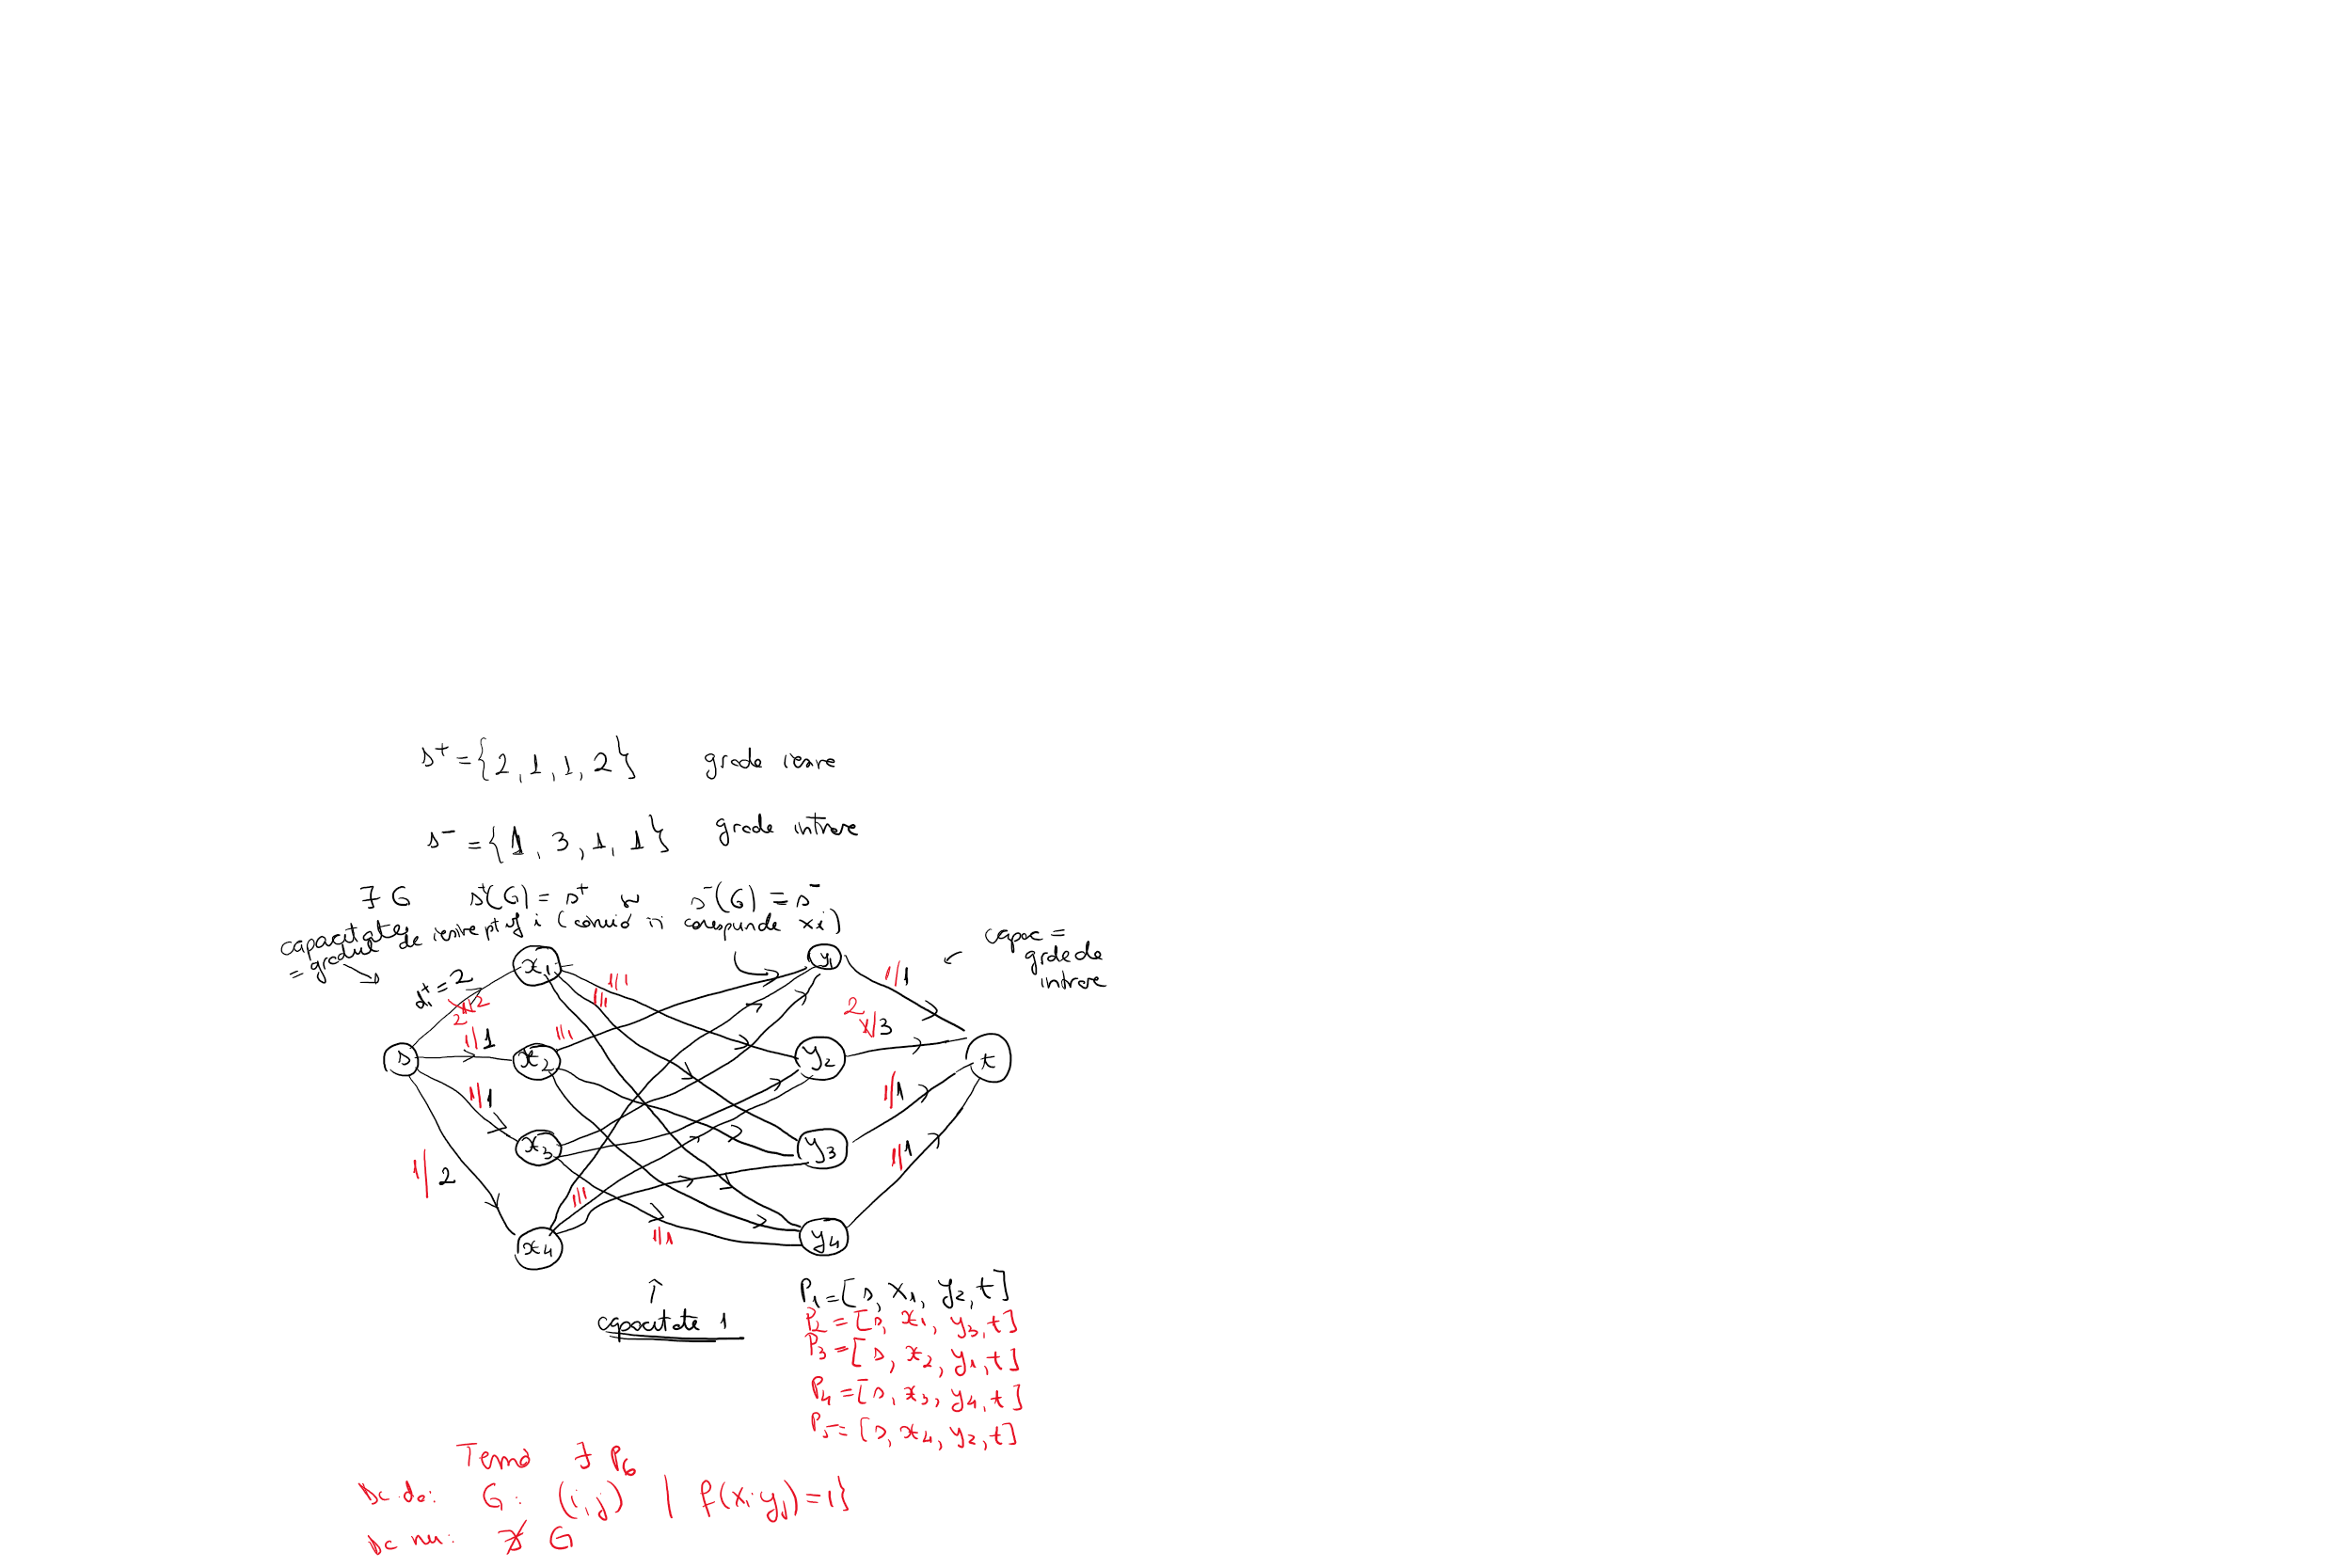 s⁺ = {2, 1, 1, 2} grade ieșire
s⁻ = {1, 3, 1, 1} grade intrare
∃ G s⁺(G) = s⁺ și s⁻(G) = s⁻
capacitate = gradul de ieșire pt vf i (căruia îi corespunde xi)
capac = grade de intrare
d₁⁺ = 2
x₁
y₁
1/1
1/1
1/1
2 1/2
2 1/3
1/1
1/1
s
x₂
y₂
t
1/1
1/1
x₃
y₃
1/1
1/2
1/1
1/1
x₄
y₄
↑
capacitate 1
P₁ = [s, x₁, y₂, t]
P₂ = [s, x₁, y₃, t]
P₃ = [s, x₂, y₁, t]
P₄ = [s, x₃, y₄, t]
P₅ = [s, x₄, y₂, t]
Temă ∃ P₆
Dc. da: G: (i, j) | f(xᵢ yⱼ) = 1}
Dc nu: ∄ G